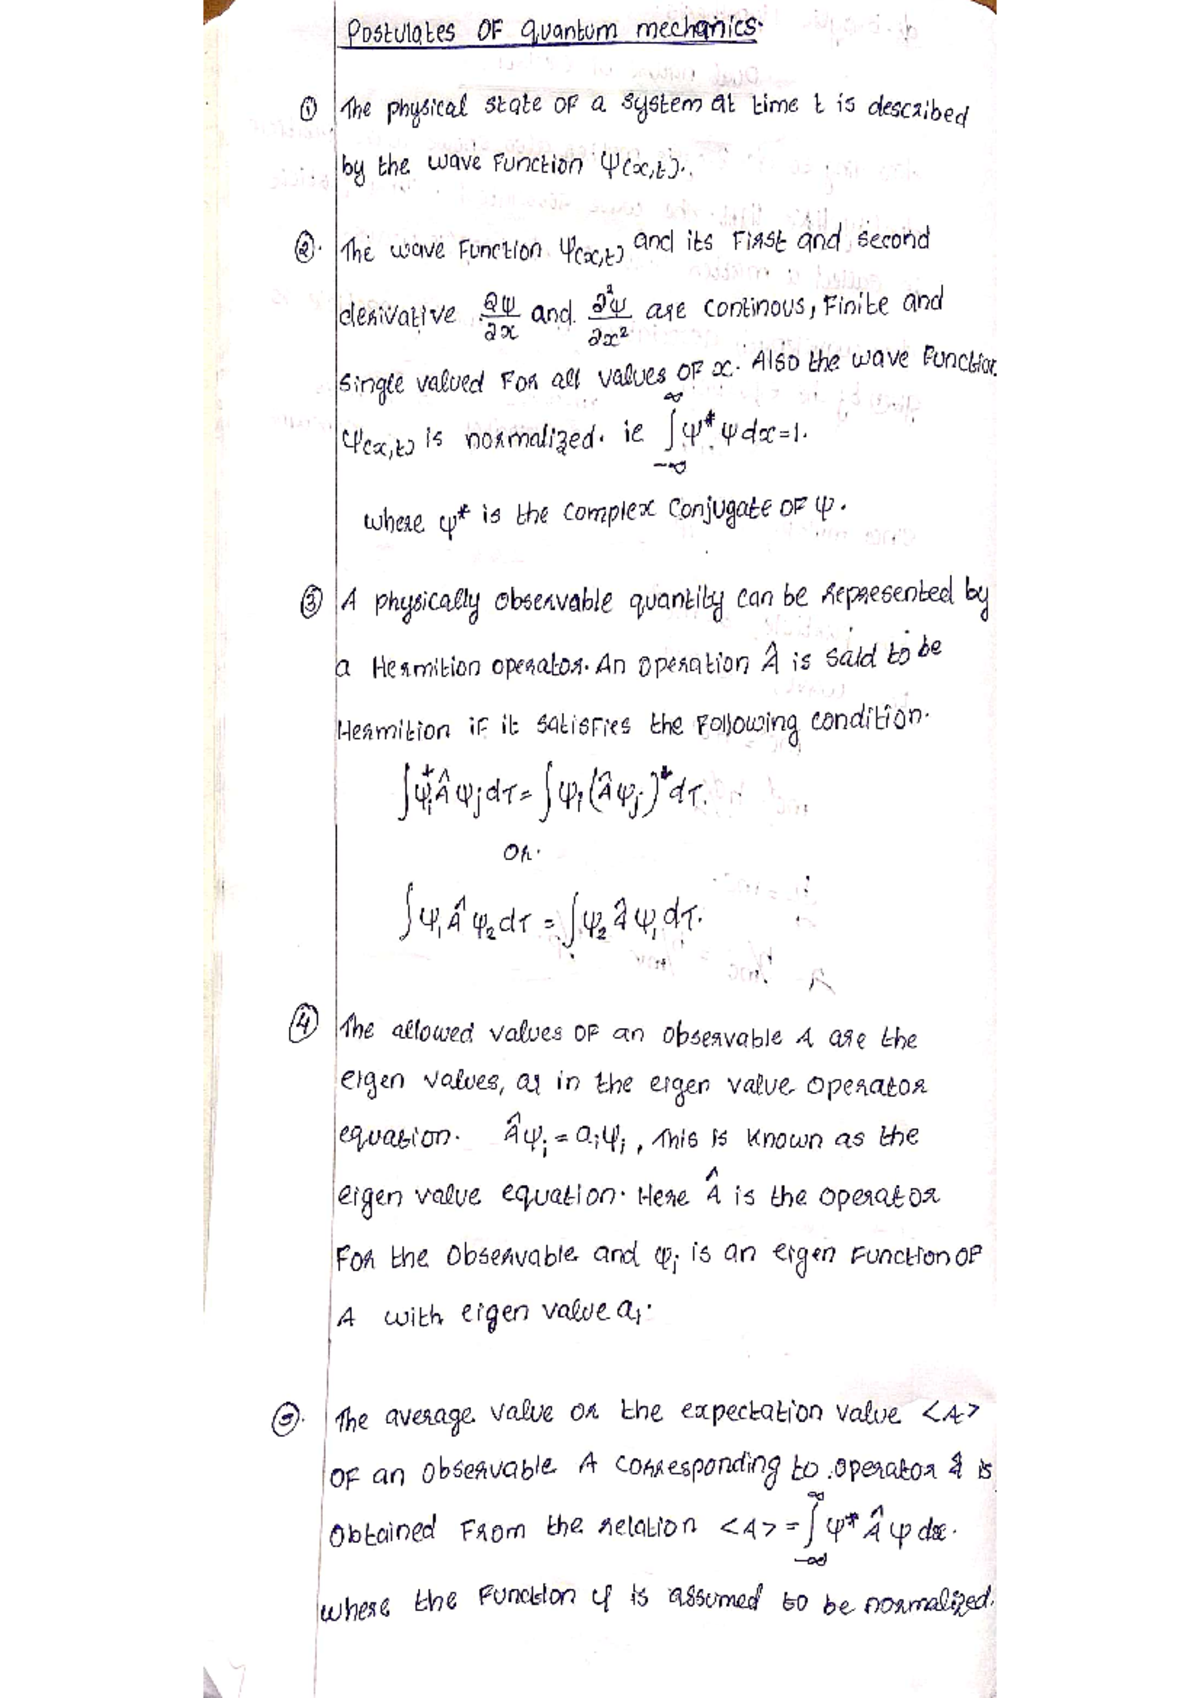 Postulates OF quantum mechanics.
① The physical state OF a system at time t is described
by the wave Function Ψ(x,t).
②. The wave Function Ψ(x,t) and its First and second
derivative ∂Ψ/∂x and ∂²Ψ/∂x² are continous, Finite and
single valued For all values OF x. Also the wave Function
Ψ(x,t) is normalized. ie ∫_{-∞}^{∞} Ψ* Ψ dx = 1.
where Ψ* is the complex conjugate OF Ψ.
③ A physically observable quantity can be represented by
a Hermition operator. An operation Â is said to be
Hermition iF it satisFies the Following condition.
∫Ψi* Â Ψj dτ = ∫Ψi (ÂΨj)* dτ.
Or.
∫Ψ₁ Â Ψ₂ dτ = ∫Ψ₂ Â Ψ₁ dτ.
④ The allowed values OF an observable A are the
eigen values, ai in the eigen value operator
equation. ÂΨi = aiΨi, This is known as the
eigen value equation. Here Â is the operator
For the Observable and Ψi is an eigen Function OF
A with eigen value ai.
⑤. The average value or the expectation value <A>
OF an observable A corresponding to operator Â is
Obtained From the relation <A> = ∫_{-∞}^{∞} Ψ* Â Ψ dx.
where the Function Ψ is assumed to be normalized.